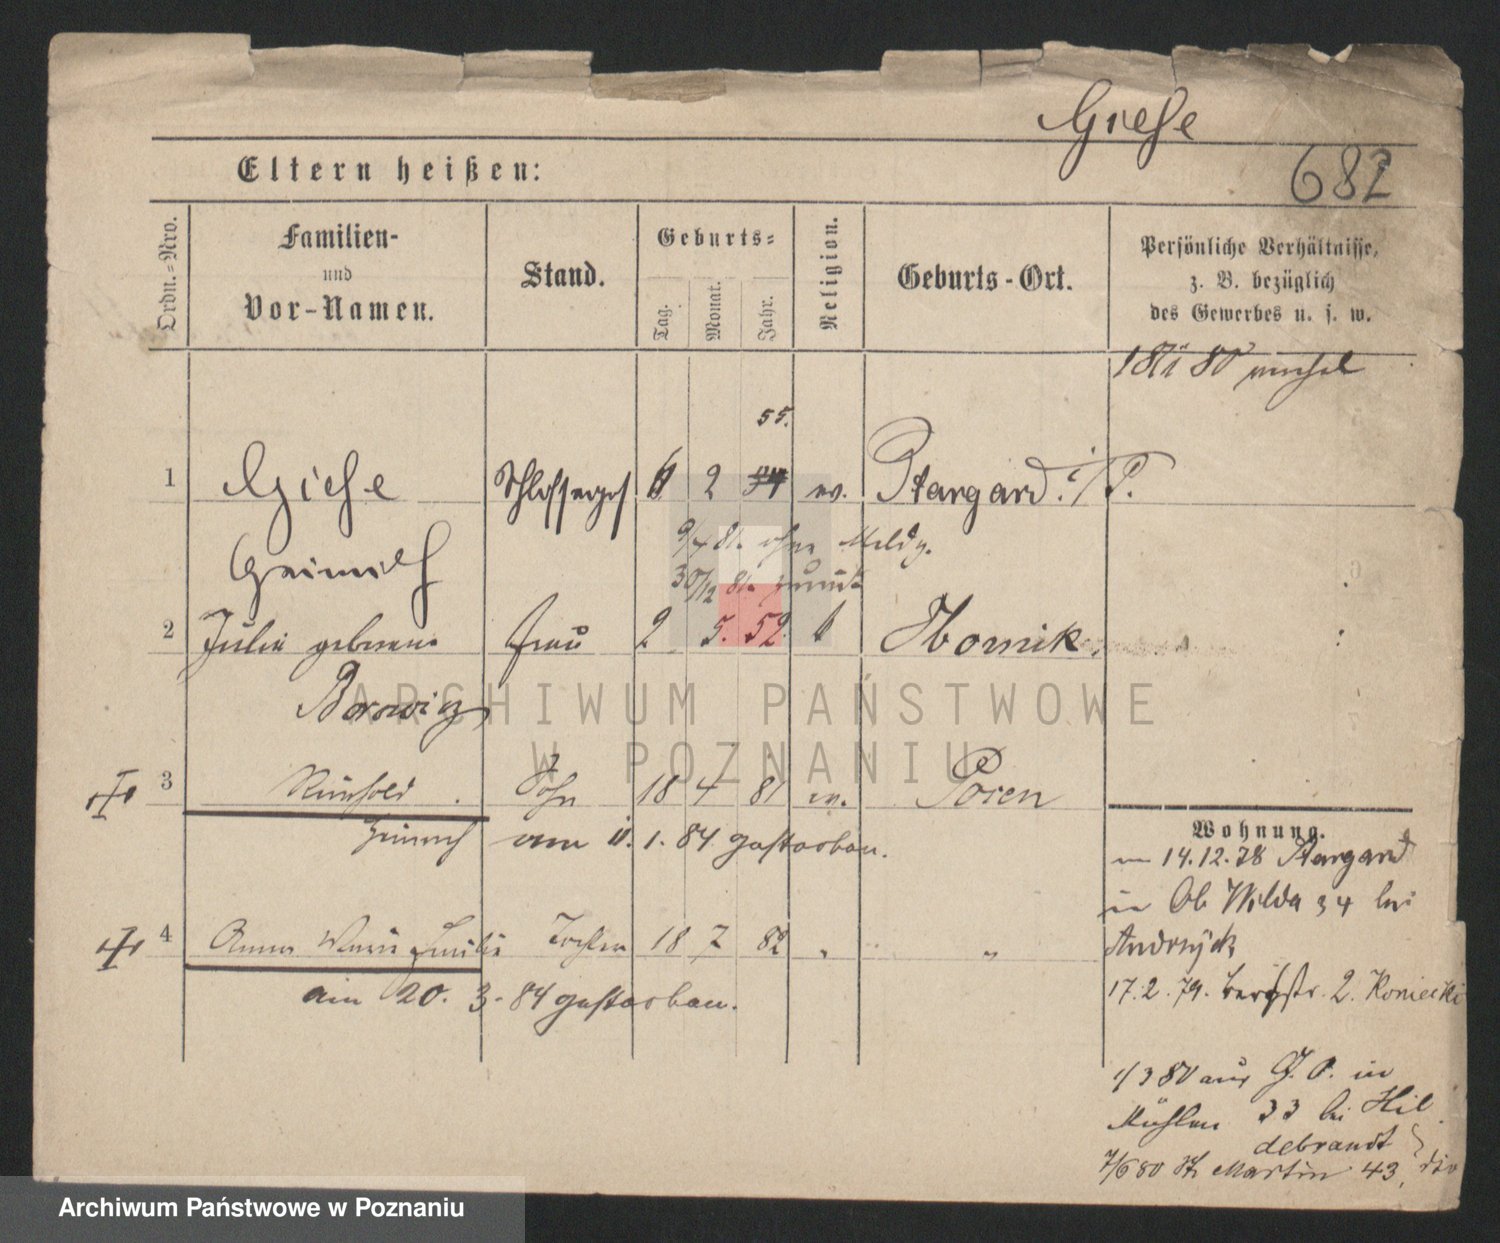 Giese
682
Eltern heißen:
Ordn.=Nro.
Familien-
und
Vor-Namen.
Stand.
Geburts=
Tag.
Monat.
Jahr.
Religion.
Geburts-Ort.
Persönliche Verhältnisse,
z. B. bezüglich
des Gewerbes u. s. w.
55.
1 Giese Schlosserges 6 2 ev. Stargard i/P.
Heinrich
9/4 81. ohne Meldg.
30/12 81. zurück
2 Julie geborene Frau 2 5. 52. Hornik
Borowicz
3 Reinhold Sohn 18 4 81 ev. Posen
Heinrich am 11. 1. 84 gestorben.
4 Anna Marie Emilie Tochter 18 7 82 " "
am 20. 3. 84 gestorben.
Wohnung.
14.12.78 Stargard
in Ob Wilda 34 bei
Andrzyck
17.2.79. Bergstr. 2. Koniecki
1/3 80 aus G. O. in
Mühlen 33 bei Hil
debrandt
7/6 80 St. Martin 43,
ARCHIWUM PAŃSTWOWE
W POZNANIU
Archiwum Państwowe w Poznaniu